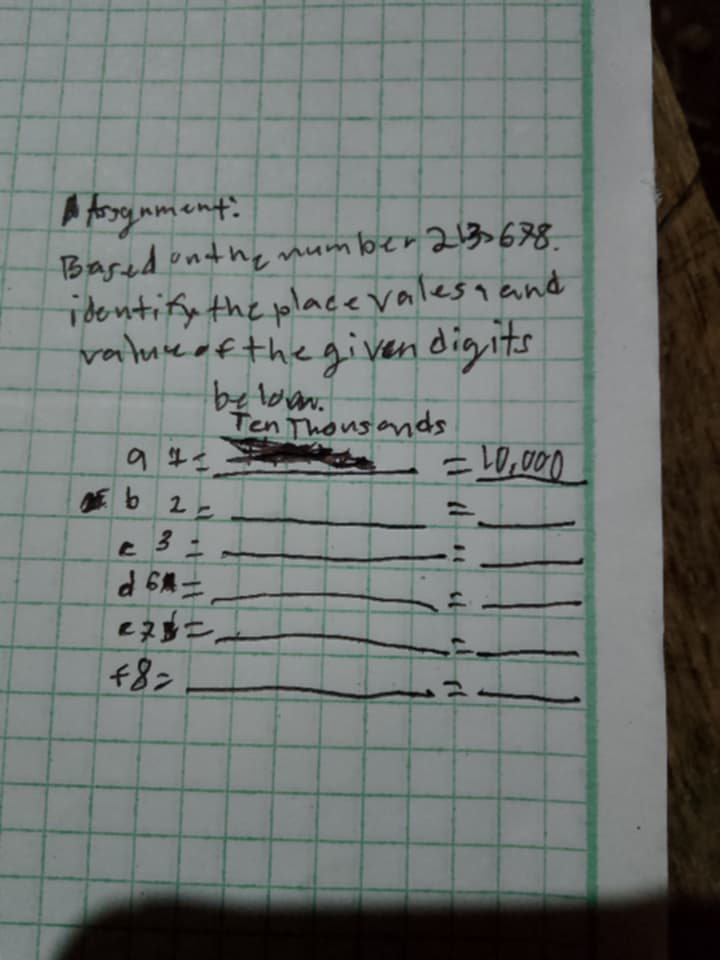 Assgnment:
Based on the number 213,678.
identify the place vales, and
value of the given digits
below.
Ten Thousands
a 1 = = 10,000
b 2 = =
c 3 = =
d 6 = =
e 7 = =
f 8 = =